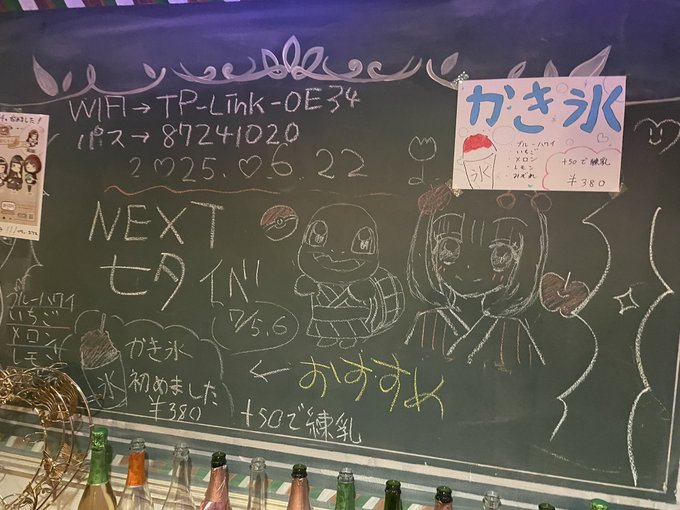 WIFI→TP-Link-0E34
パス→87241020
2025.♡6 22
かき氷
・ブルーハワイ
・いちご
・メロン
・レモン
・みぞれ
+50で練乳
¥380
氷
NEXT
七夕イベ
7/5.6
ブルーハワイ
いちご
メロン
レモン
氷
かき氷
初めました
¥380
←おすすめ
+50で練乳